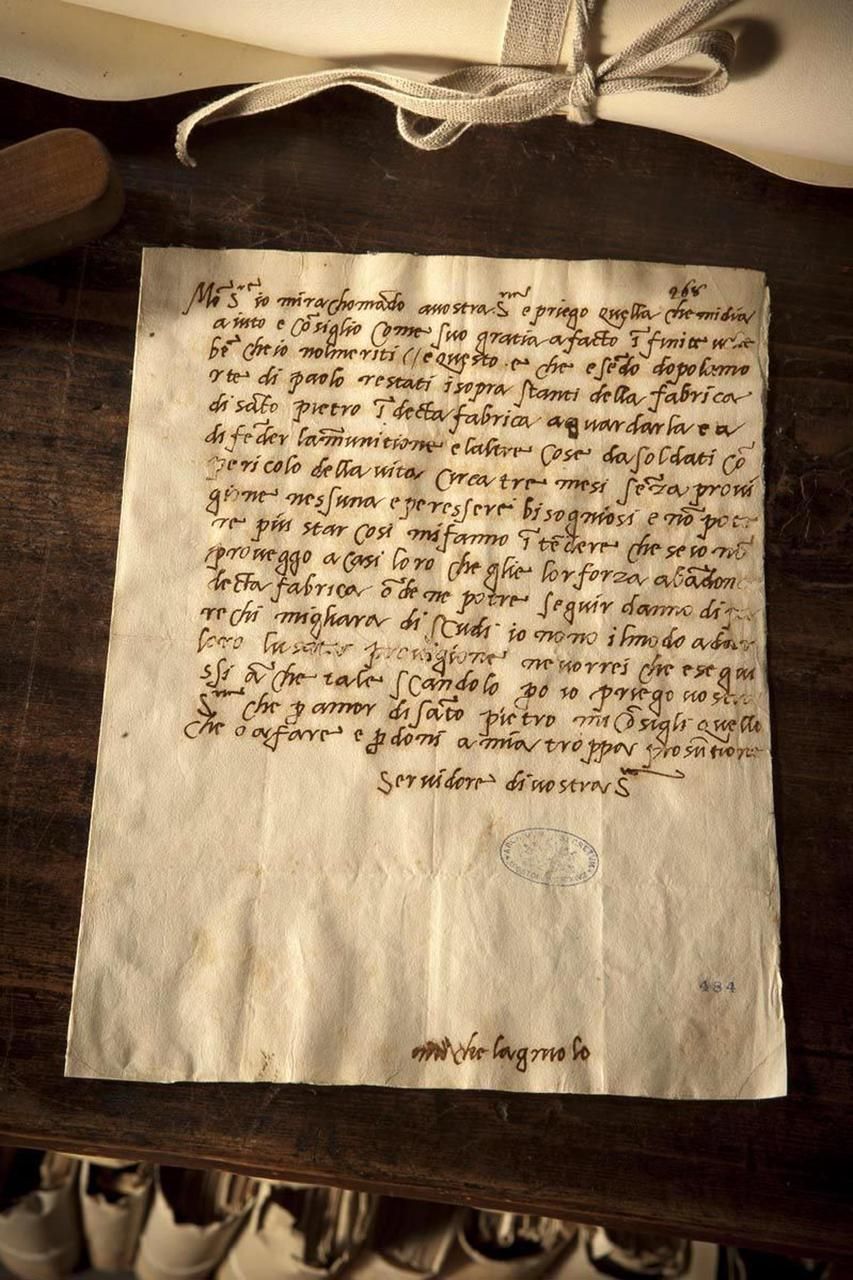 268
Mo(n) S re io mi rachoma(n)do a vostra S ria e priego quella che mi dia
aiuto e co(n)siglio Come suo gratia a facto i(n)finite
be(n) che io nol meriti // e questo e che ese(n)do dopo la mo
rte di paolo restati i sopra stanti della fabrica
di sa(n)to pietro i(n) decta fabrica a guardarla e a
di fe(n)der la munitione e laltre Cose da soldati co(n)
pericolo della vita Circa tre mesi se(n)za provi
gione nessuna e per essere bisogniosi e no(n) pote
re piu star Cosi mi fanno i(n)te(n)dere che se io no(n)
proveggo a Casi loro che glie lor forza aba(n)don
decta fabrica o(n)de ne potre seguir danno di
rechi migliara di scudi io no no il modo a dar
loro provigione ne vorrei che esegui
ssi a(n)che tale scandolo po io priego vostra
S ria che p amor di sa(n)to pietro mi Co(n)sigli quello
che o a fare e p doni a mia troppa prosu(n)tione
servidore di vostra S ria
ARCHIVUM SECRETUM
484
michelagniolo